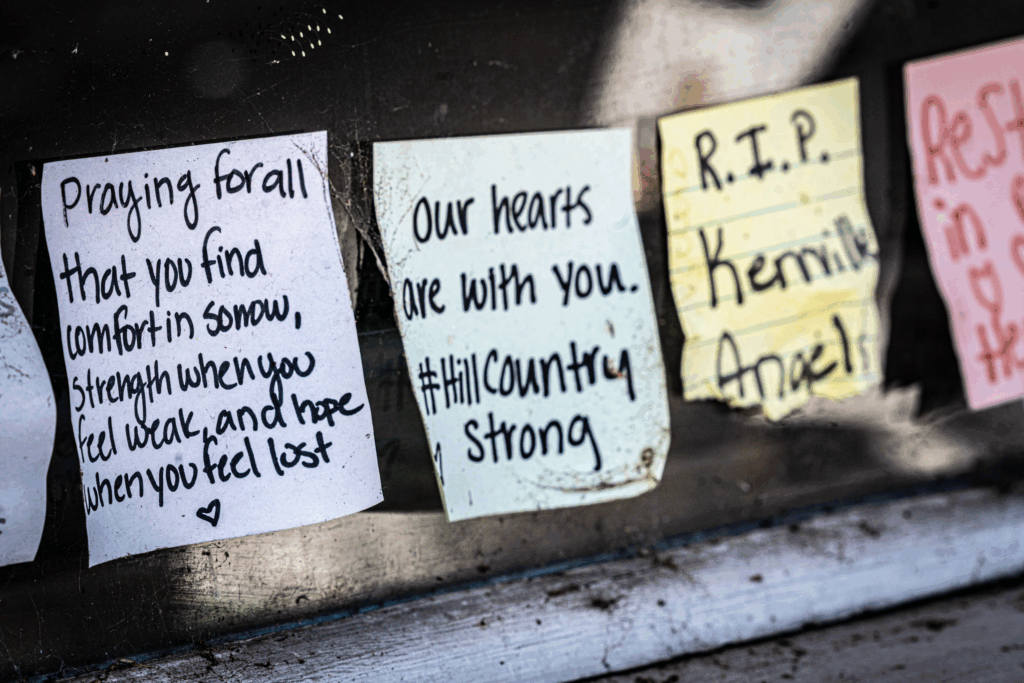 Praying for all
that you find
comfort in sorrow,
strength when you
feel weak, and hope
when you feel lost
♡
Our hearts
are with you.
#HillCountry
strong
R.I.P.
Kerrville
Angels
Rest
in
♡